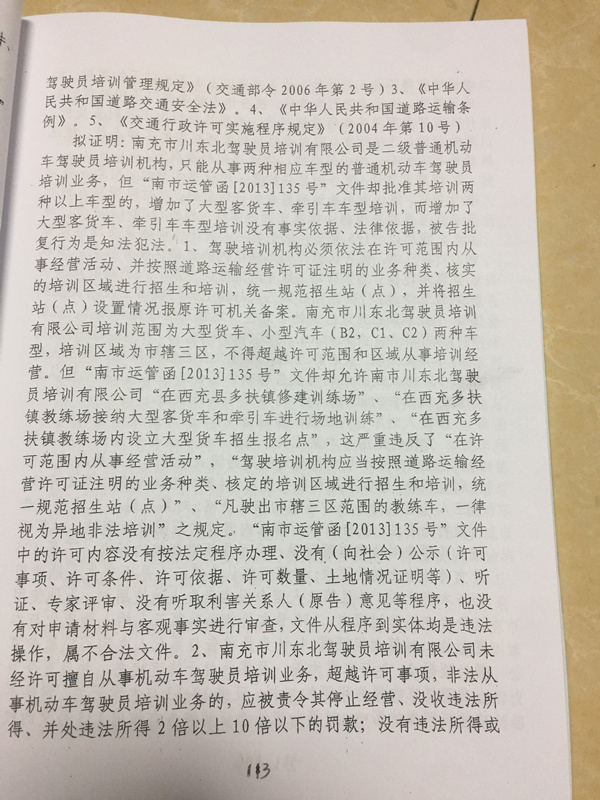 驾驶员培训管理规定》(交通部令2006年第2号)3、《中华人
民共和国道路交通安全法》。4、《中华人民共和国道路运输条
例》。5、《交通行政许可实施程序规定》(2004年第10号)
拟证明:南充市川东北驾驶员培训有限公司是二级普通机动
车驾驶员培训机构,只能从事两种相应车型的普通机动车驾驶员
培训业务,但“南市运管函[2013]135号”文件却批准其培训两
种以上车型的,增加了大型客货车、牵引车车型培训,而增加了
大型客货车、牵引车车型培训没有事实依据、法律依据,被告批
复行为是知法犯法。1、驾驶培训机构必须依法在许可范围内从
事经营活动、并按照道路运输经营许可证注明的业务种类、核实
的培训区域进行招生和培训,统一规范招生站(点),并将招生
站(点)设置情况报原许可机关备案。南充市川东北驾驶员培训
有限公司培训范围为大型货车、小型汽车(B2,C1、C2)两种车
型,培训区域为市辖三区,不得超越许可范围和区域从事培训经
营。但“南市运管函[2013]135号”文件却允许南市川东北驾驶
员培训有限公司“在西充县多扶镇修建训练场”、“在西充多扶
镇教练场接纳大型客货车和牵引车进行场地训练”、“在西充多
扶镇教练场内设立大型货车招生报名点”,这严重违反了“在许
可范围内从事经营活动”,“驾驶培训机构应当按照道路运输经
营许可证注明的业务种类、核定的培训区域进行招生和培训,统
一规范招生站(点)”、“凡驶出市辖三区范围的教练车,一律
视为异地非法培训”之规定。“南市运管函[2013]135号”文件
中的许可内容没有按法定程序办理、没有(向社会)公示(许可
事项、许可条件、许可依据、许可数量、土地情况证明等)、听
证、专家评审、没有听取利害关系人(原告)意见等程序,也没
有对申请材料与客观事实进行审查,文件从程序到实体均是违法
操作,属不合法文件。2、南充市川东北驾驶员培训有限公司未
经许可擅自从事机动车驾驶员培训业务,超越许可事项,非法从
事机动车驾驶员培训业务的,应被责令其停止经营、没收违法所
得、并处违法所得2倍以上10倍以下的罚款;没有违法所得或
113